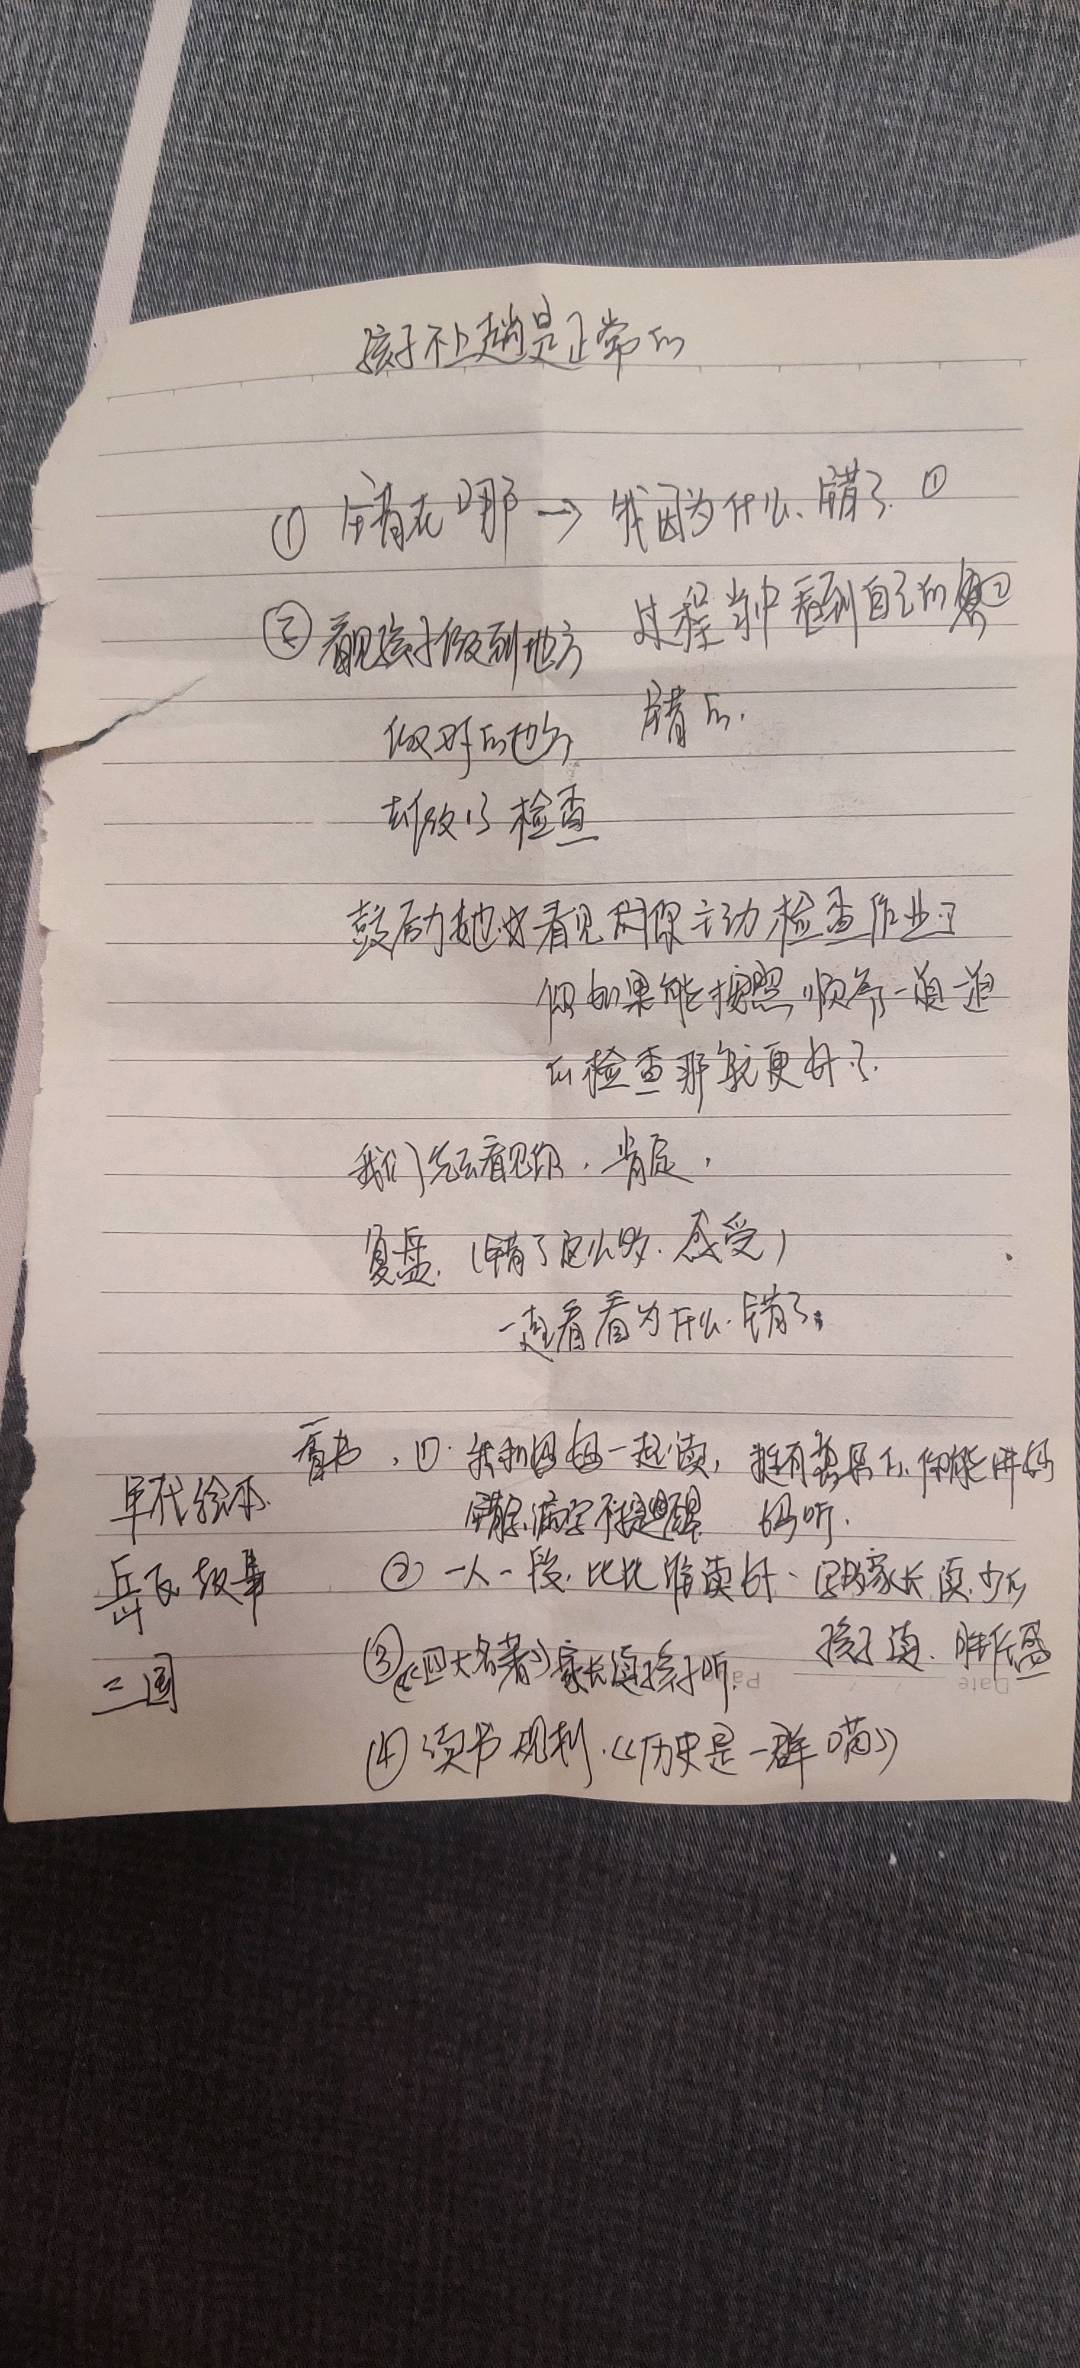 孩子不上趟是正常的
① 错在哪 → 我因为什么错了 ①
② 看见孩子做到地方
过程当中看到自己的 ②
做对的地方
错的.
去做了检查
鼓励她 看见 你主动检查作业了
但如果能按照顺序一道一道
的检查那就更好了.
我们先去看见你, 肯定,
复盘. (错了这么多. 感受)
一起看看为什么错了.
看书, ①. 我和妈妈一起读, 挺有 你能讲给
年代绘本.
错字 不提醒 妈听.
② 一人一段. 比比谁读好. 家长读少的
岳飞故事
孩子读.
③《四大名著》家长读孩子听.
三国
④ 读书规划.《历史是一群喵》
Date
Pa